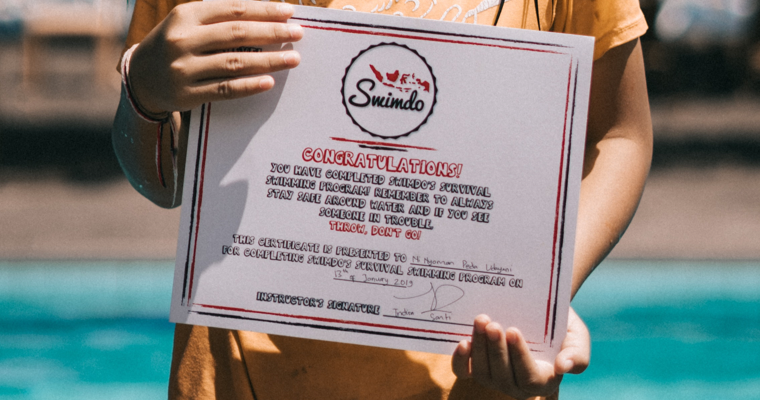 Swimdo
CONGRATULATIONS!
YOU HAVE COMPLETED SWIMDO'S SURVIVAL
SWIMMING PROGRAM! REMEMBER TO ALWAYS
STAY SAFE AROUND WATER AND IF YOU SEE
SOMEONE IN TROUBLE,
THROW, DON'T GO!
THIS CERTIFICATE IS PRESENTED TO Ni Nyoman
FOR COMPLETING SWIMDO'S SURVIVAL SWIMMING PROGRAM ON
13th of January 2019
INSTRUCTOR'S SIGNATURE Indira Santi